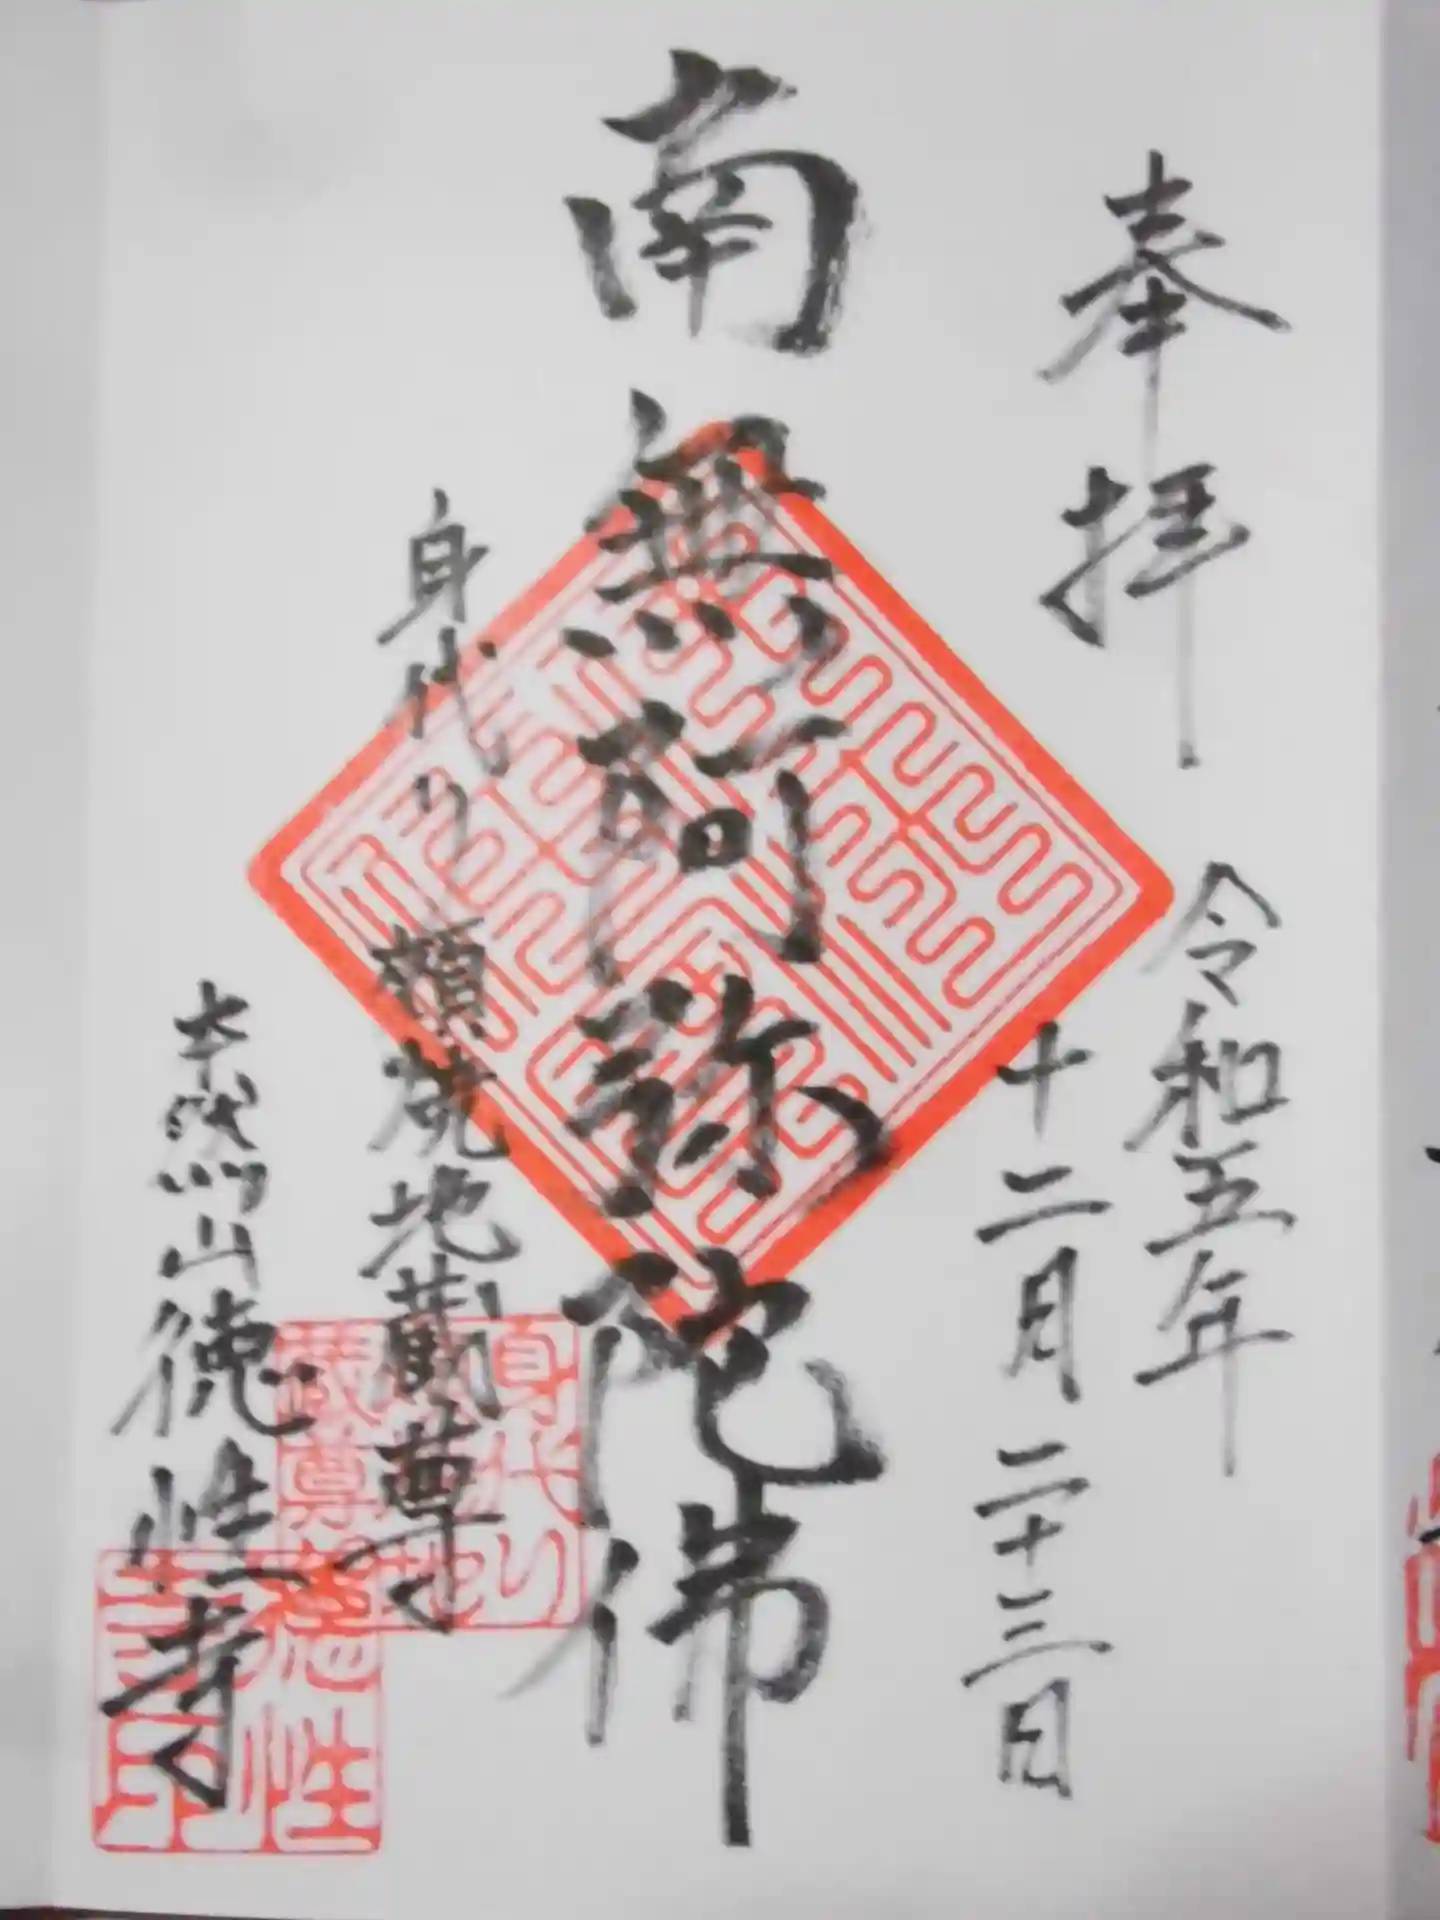 奉拝
令和五年
十二月二十三日
南無阿弥陀佛
身代り
頬焼地蔵尊
本然山徳性寺
身代り
地
蔵尊
徳性
寺印